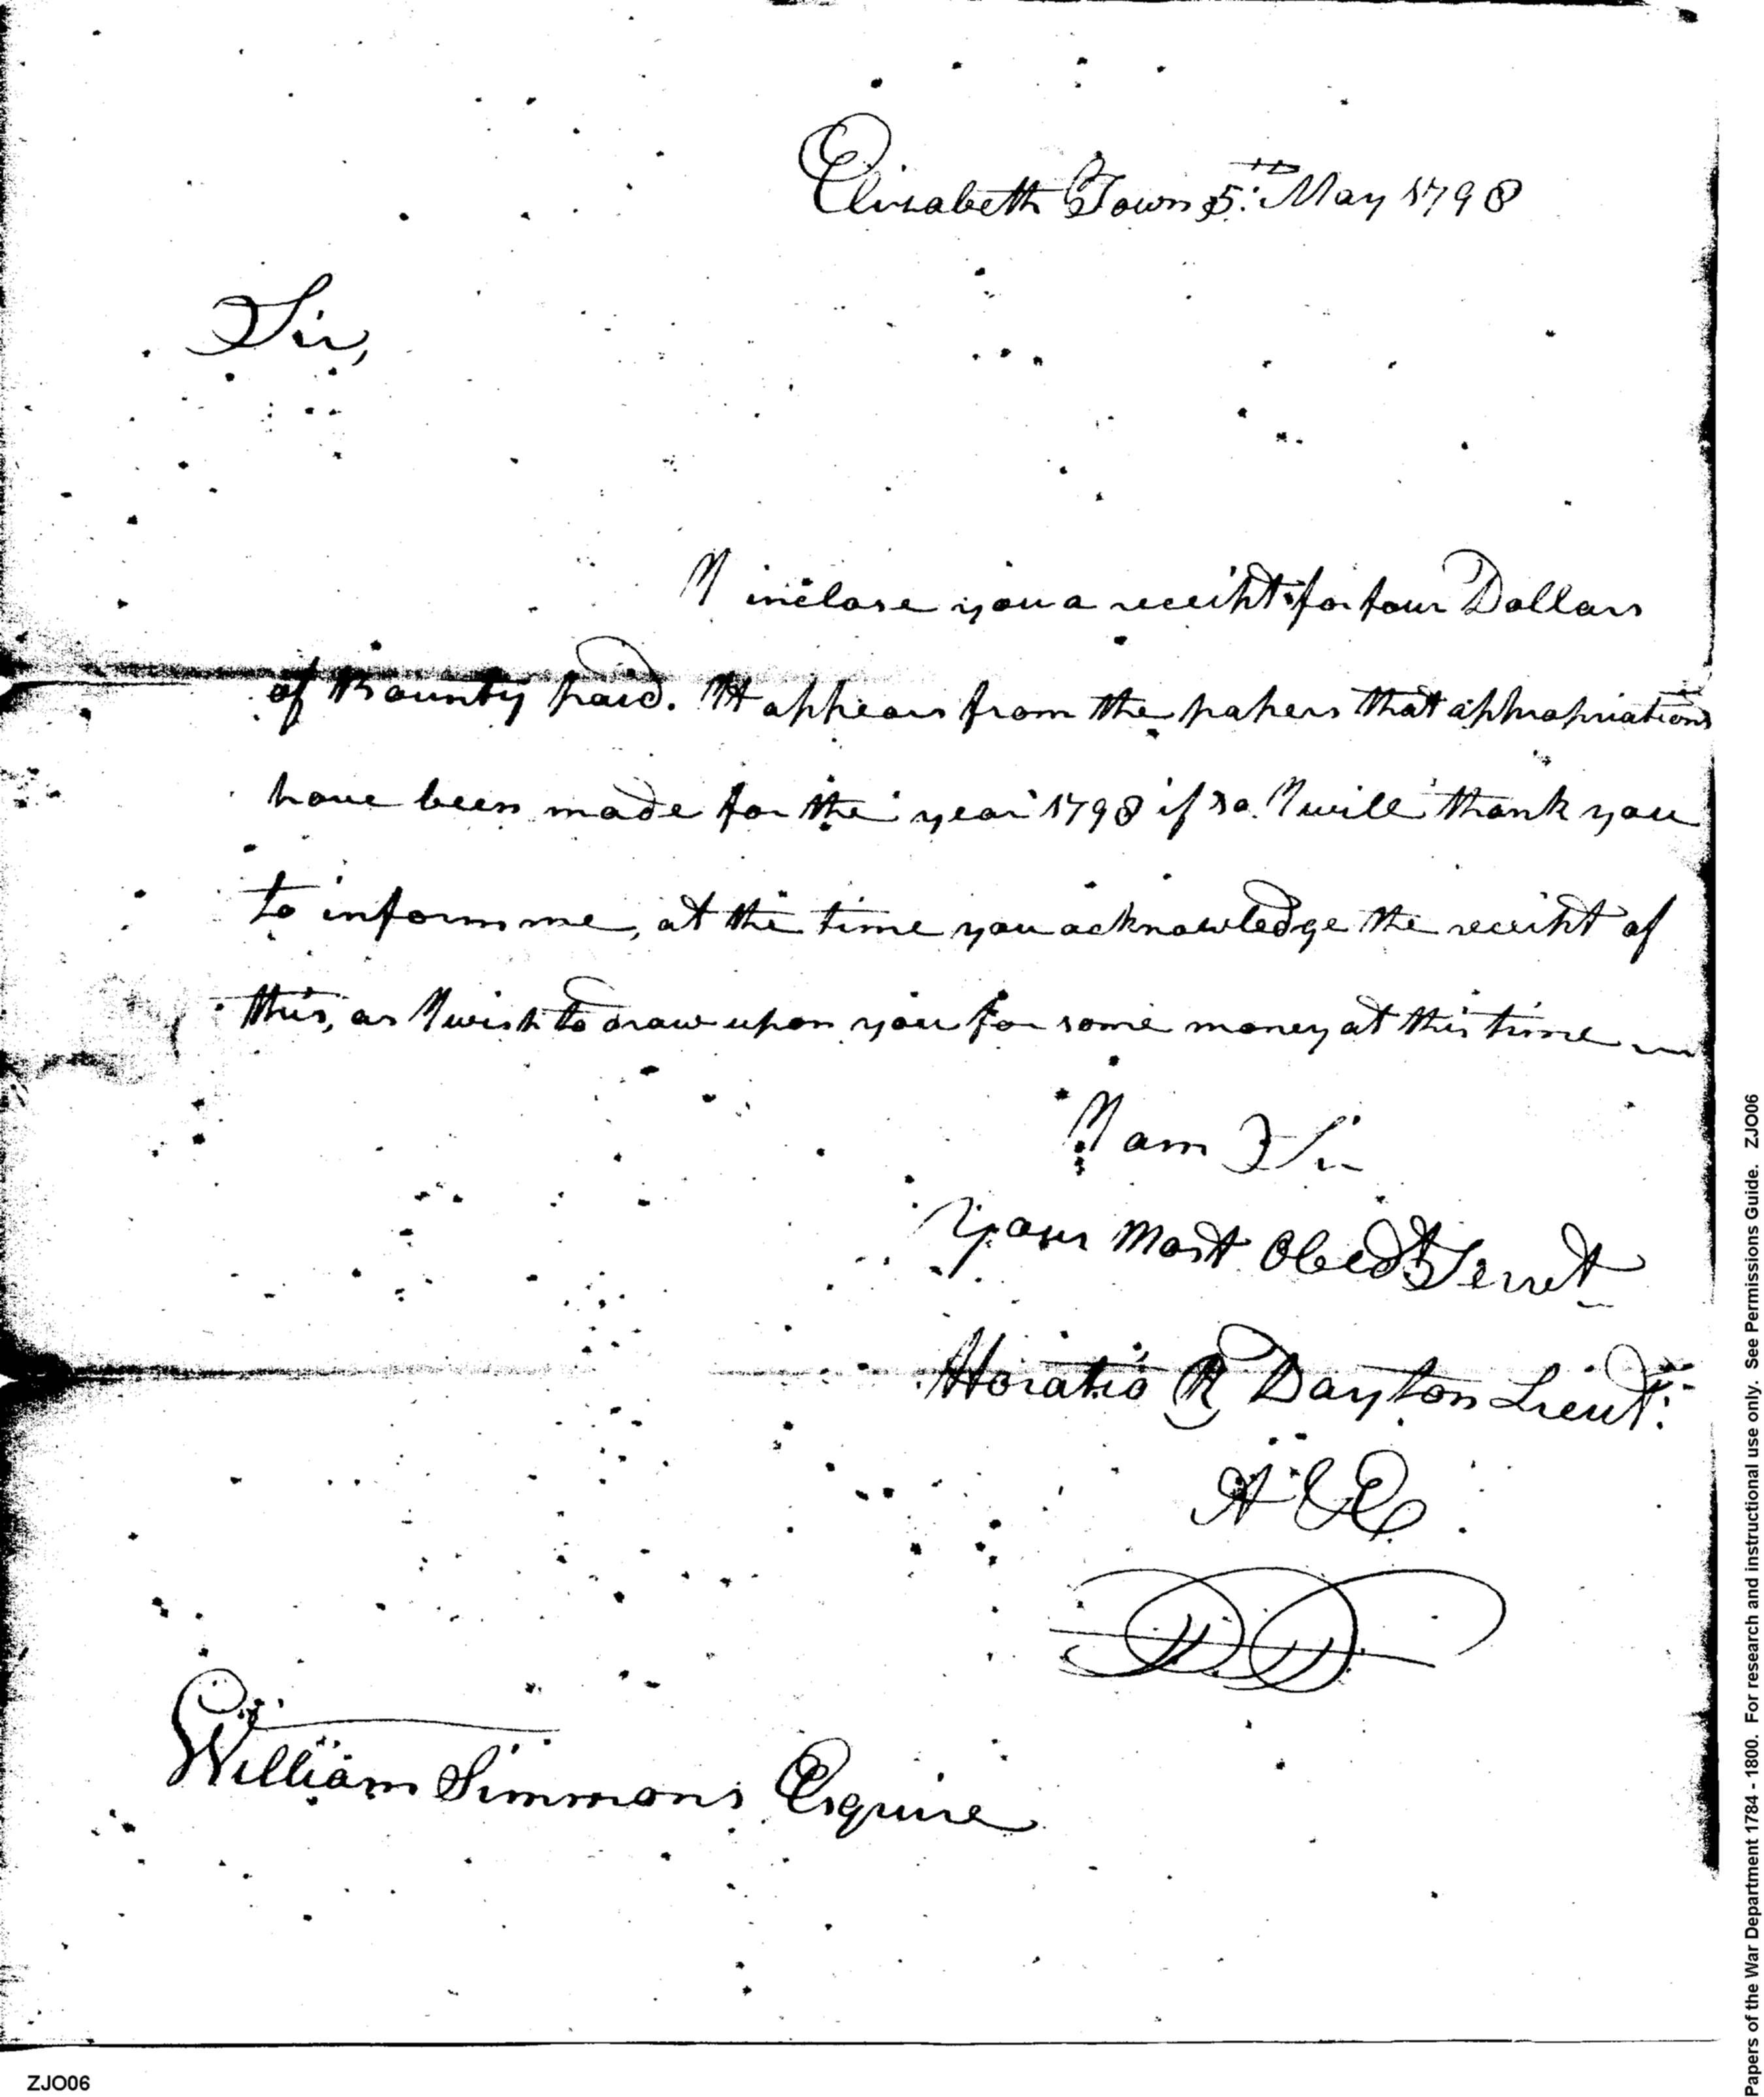 Elizabeth Town 5th May 1798
Sir,
I inclose you a receipt for four Dollars
of Bounty paid. It appears from the papers that appropriations
have been made for the year 1798 if so I will thank you
to inform me, at the time you acknowledge the receipt of
this, as I wish to draw upon you for some money at this time
I am Sir
Your Most Obedt Servt
Horatio R Dayton Lieut.
William Simmons Esquire
ZJO06
Papers of the War Department 1784 - 1800. For research and instructional use only. See Permissions Guide. ZJO06